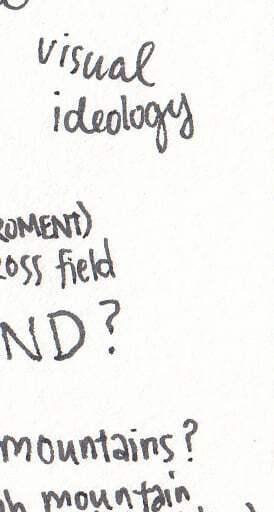 visual
ideology
ROMENT)
oss field
ND?
mountains?
gh mountain